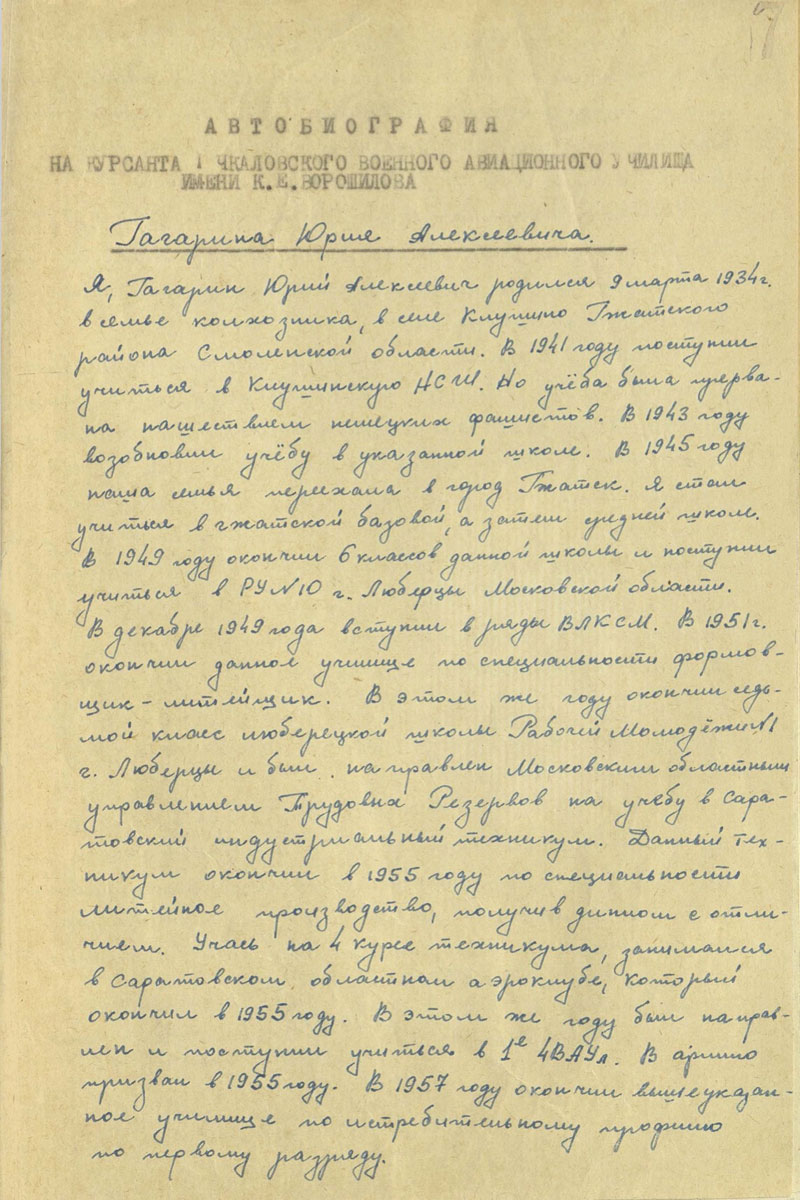 АВТОБИОГРАФИЯ
НА КУРСАНТА 1 ЧКАЛОВСКОГО ВОЕННОГО АВИАЦИОННОГО УЧИЛИЩА
ИМЕНИ К.Е.ВОРОШИЛОВА
Гагарина Юрия Алексеевича.
Я, Гагарин Юрий Алексеевич родился 9 марта 1934 г.
в семье колхозника, в селе Клушино Гжатского
района Смоленской области. В 1941 году поступил
учиться в Клушинскую НСШ. Но учёба была прерва-
на нашествием немецких фашистов. В 1943 году
возобновил учёбу в указанной школе. В 1945 году
наша семья переехала в город Гжатск. Я стал
учиться в гжатской базовой, а затем средней школе.
В 1949 году окончил 6 классов данной школы и поступил
учиться в РУ №10 г. Люберцы Московской области.
В декабре 1949 года вступил в ряды ВЛКСМ. В 1951 г.
окончил данное училище по специальности формов-
щик-литейщик. В этом же году окончил седь-
мой класс люберецкой школы Рабочей Молодёжи №1
г. Люберцы и был направлен Московским областным
управлением Трудовых Резервов на учёбу в Сара-
товский индустриальный техникум. Данный тех-
никум окончил в 1955 году по специальности
литейное производство, получив диплом с отли-
чием. Учась на 4 курсе техникума, занимался
в Саратовском областном аэроклубе, который
окончил в 1955 году. В этом же году был направ-
лен и поступил учиться в 1е ЧВАУл. В армию
призван в 1955 году. В 1957 году окончил вышеуказан-
ное училище по истребительному профилю
по первому разряду.